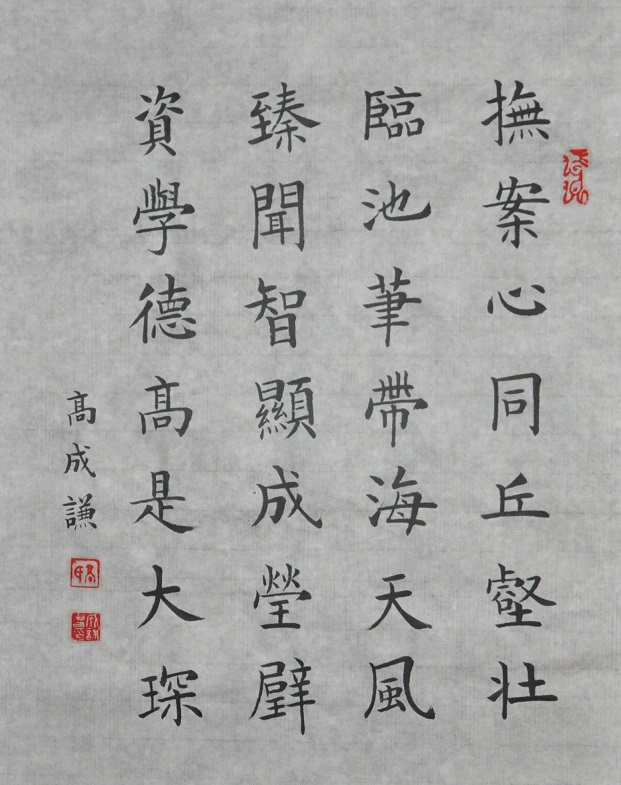 撫案心同丘壑壮
臨池筆帶海天風
臻聞智顯成瑩璧
資學德髙是大琛
髙成謙